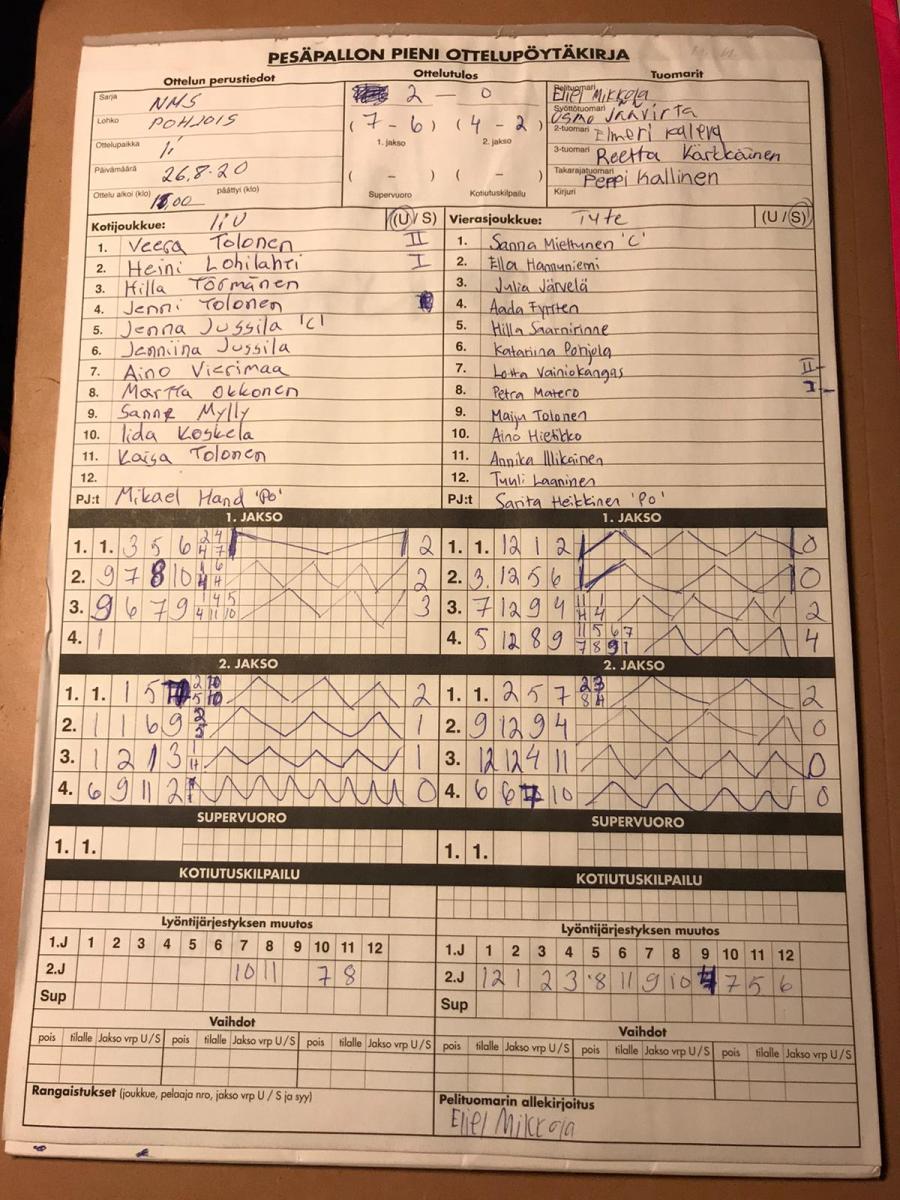 PESÄPALLON PIENI OTTELUPÖYTÄKIRJA
Ottelun perustiedot
Ottelutulos
Tuomarit
Sarja NMS
2 - 0
Pelituomari Eliel Mikkola
Lohko POHJOIS
(7 - 6) (4 - 2)
Syöttötuomari
1. jakso 2. jakso
2-tuomari Elmeri Kaleva
Ottelupaikka Ii
3-tuomari Reetta Kärkkäinen
Päivämäärä 26.8.20
( - ) ( - )
Takarajatuomari
Peppi Kallinen
Ottelu alkoi (klo) päättyi (klo)
Supervuoro Kotiutuskilpailu
Kirjuri
Kotijoukkue: IiU (U / S)
1. Veera Tolonen II
2. Heini Lohilahti I
3. Hilla Törmänen
4. Jenni Tolonen
5. Jenna Jussila 'C'
6. Jenniina Jussila
7. Aino Vierimaa
8. Martta Okkonen
9. Sanna Mylly
10. Iida Koskela
11. Kaisa Tolonen
12.
PJ:t Mikael Hand 'Po'
Vierasjoukkue: Tyte (U / S)
1. Sanna Miettunen 'C'
2. Ella Hannuniemi
3. Julia Järvelä
4. Aada Fyrsten
5. Hilla Saarnirinne
6. Katariina Pohjola
7. Lotta Vainiokangas II
8. Petra Matero I
9. Maiju Tolonen
10. Aino Hietikko
11. Annika Illikainen
12. Tuuli Laaninen
PJ:t Sarita Heikkinen 'Po'
1. JAKSO
1. 1. 3 5 6 2 4 4 7 2
2. 9 7 8 10 2
3. 9 6 7 9 1 4 5 4 11 10 3
4. 1
1. JAKSO
1. 1. 12 1 2 0
2. 3 12 5 6 0
3. 7 12 9 4 2
4. 5 12 8 9 11 5 6 7 7 8 9 1 4
2. JAKSO
1. 1. 1 5 2
2. 1 1 6 9 1
3. 1 2 1 3 1
4. 6 9 11 2 0
2. JAKSO
1. 1. 2 5 7 2
2. 9 12 9 4 0
3. 12 12 4 11 0
4. 6 6 7 10 0
SUPERVUORO
1. 1.
SUPERVUORO
1. 1.
KOTIUTUSKILPAILU
KOTIUTUSKILPAILU
Lyöntijärjestyksen muutos
1.J 1 2 3 4 5 6 7 8 9 10 11 12
2.J 10 11 7 8
Sup
Lyöntijärjestyksen muutos
1.J 1 2 3 4 5 6 7 8 9 10 11 12
2.J 12 1 2 3 8 11 9 10 4 7 5 6
Sup
Vaihdot
pois tilalle Jakso vrp U / S pois tilalle Jakso vrp U / S pois tilalle Jakso vrp U / S
Vaihdot
pois tilalle Jakso vrp U / S pois tilalle Jakso vrp U / S pois tilalle Jakso vrp U / S
Rangaistukset (joukkue, pelaaja nro, jakso vrp U / S ja syy)
Pelituomarin allekirjoitus
Eliel Mikkola